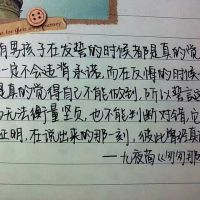 有男孩子在发誓的时候都是真的觉
一定不会违背承诺,而在反悔的时候
是真的觉得自己不能做到,所以誓言这
无法衡量坚贞,也不能判断对错,它
证明,在说出来的那一刻,彼此曾经真诚
——九夜茴《匆匆那